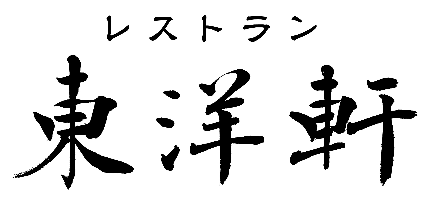 レストラン
東洋軒